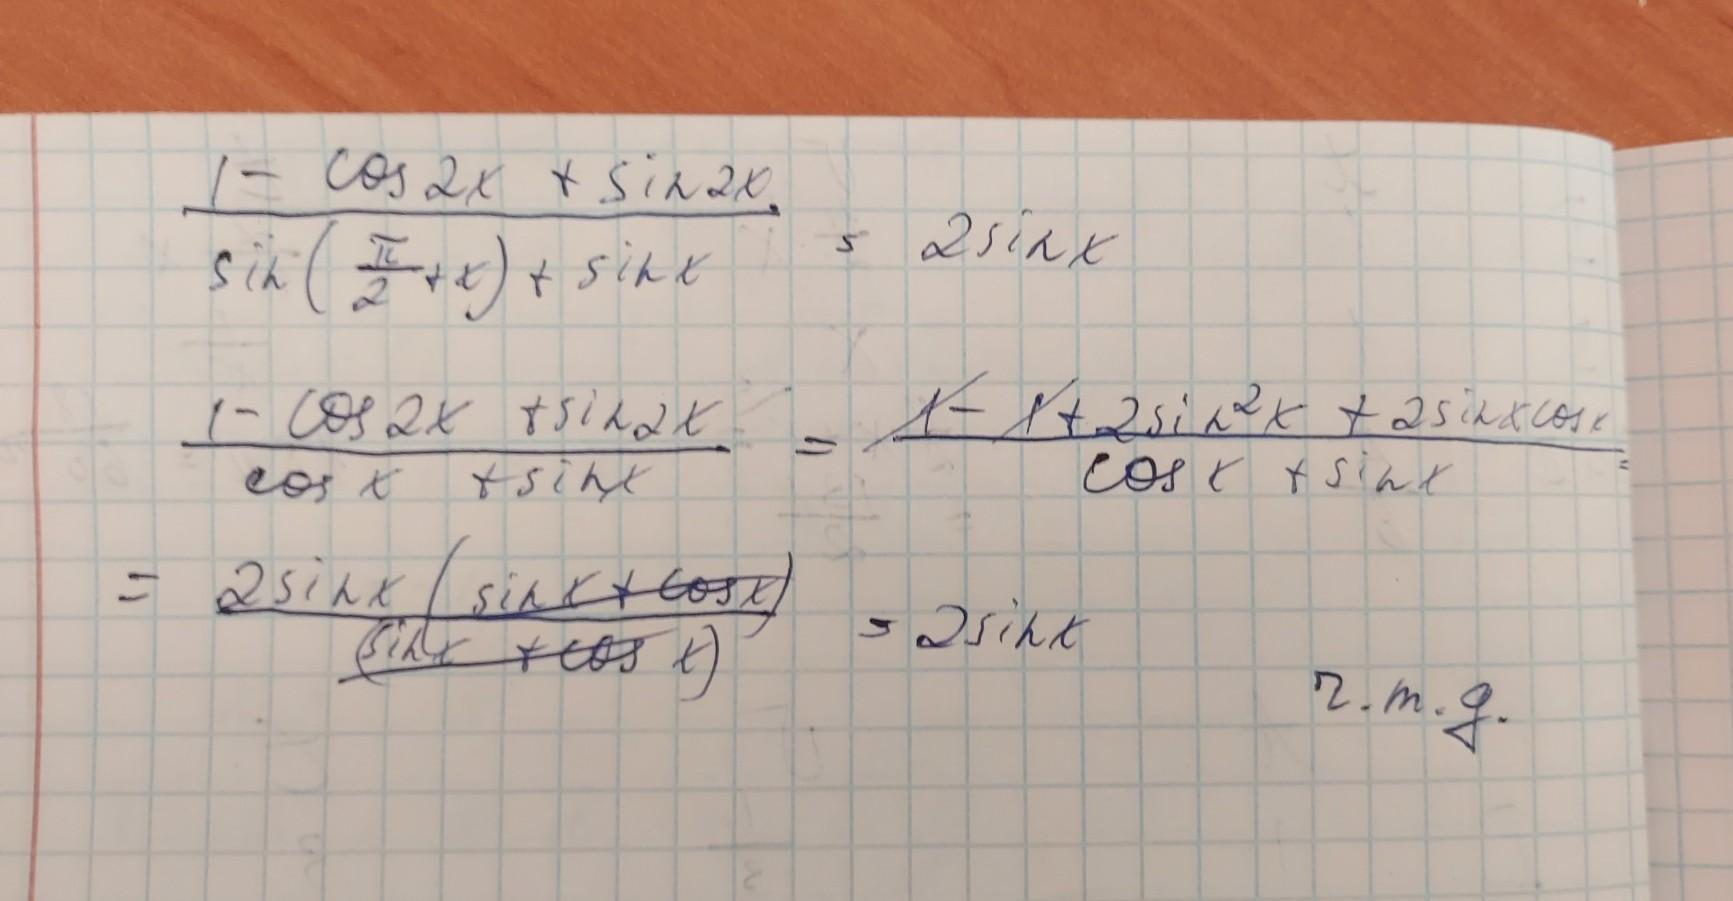 (1 - cos2x + sin2x) / (sin(π/2 + x) + sinx) = 2sinx
(1 - cos2x + sin2x) / (cosx + sinx) = (1 - 1 + 2sin²x + 2sinxcosx) / (cosx + sinx) =
= 2sinx(sinx + cosx) / (sinx + cosx) = 2sinx
ч.т.д.